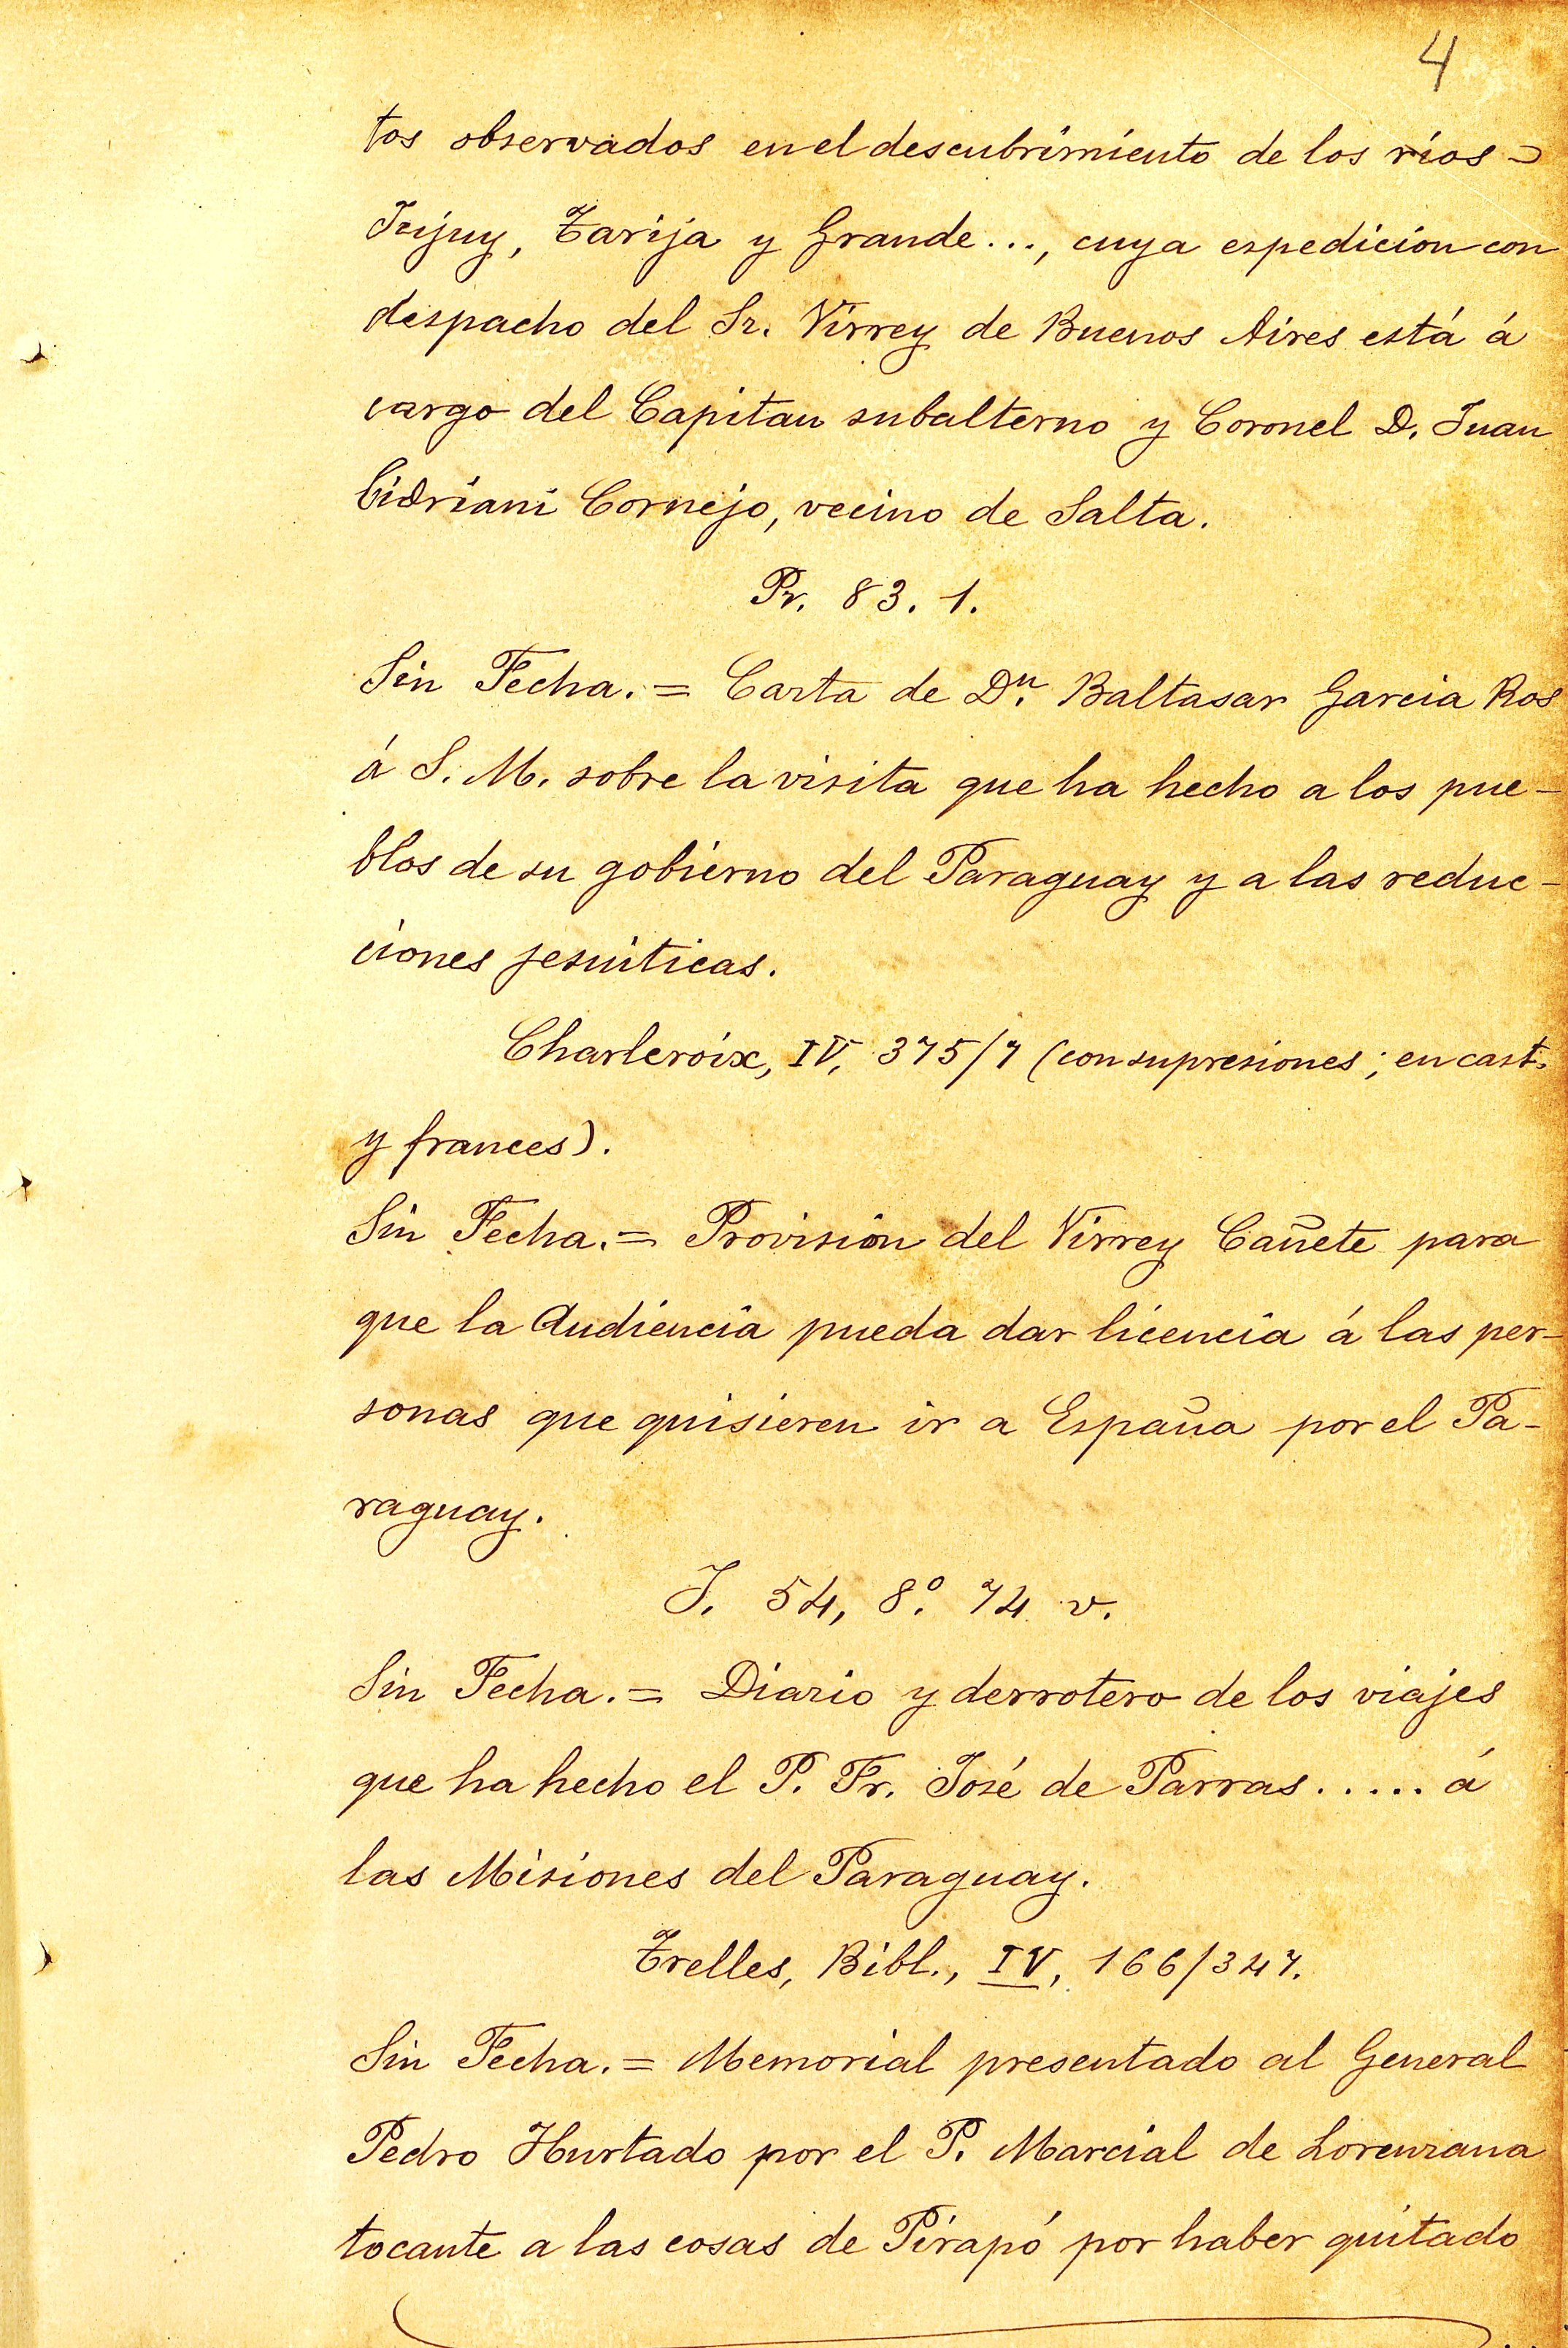 4
tos observados en el descubrimiento de los rios =
Jujuy, Tarija y Grande..., cuya espedicion con
despacho del Sr. Virrey de Buenos Aires está á
cargo del Capitan subalterno y Coronel D. Juan
Cornejo, vecino de Salta.
Pr. 83. 1.
Sin Fecha. = Carta de Dn. Baltasar Garcia Ros
á S. M. sobre la visita que ha hecho a los pue-
blos de su gobierno del Paraguay y a las reduc-
ciones jesuiticas.
Charleroix, IV, 375/7 (con supresiones; en cast.
y frances).
Sin Fecha. = Provision del Virrey Cañete para
que la Audiencia pueda dar licencia á las per-
sonas que quisieren ir a España por el Pa-
raguay.
J. 54, 8º. 74 v.
Sin Fecha. = Diario y derrotero de los viajes
que ha hecho el P. Fr. José de Parras ..... á
las Misiones del Paraguay.
Trelles, Bibl., IV, 166/347.
Sin Fecha. = Memorial presentado al General
Pedro Hurtado por el P. Marcial de Lorenzana
tocante a las cosas de Pirapó por haber quitado